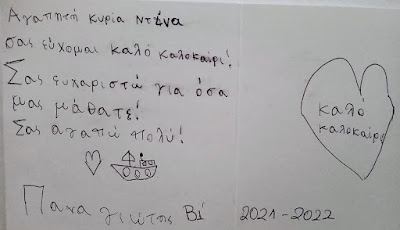 Αγαπητή κυρία Ντένα
σας εύχομαι καλό καλοκαίρι!
Σας ευχαριστώ για όσα
μας μάθατε!
Σας αγαπώ πολύ!
καλό
καλοκαίρι
Παναγιώτης Β1
2021-2022